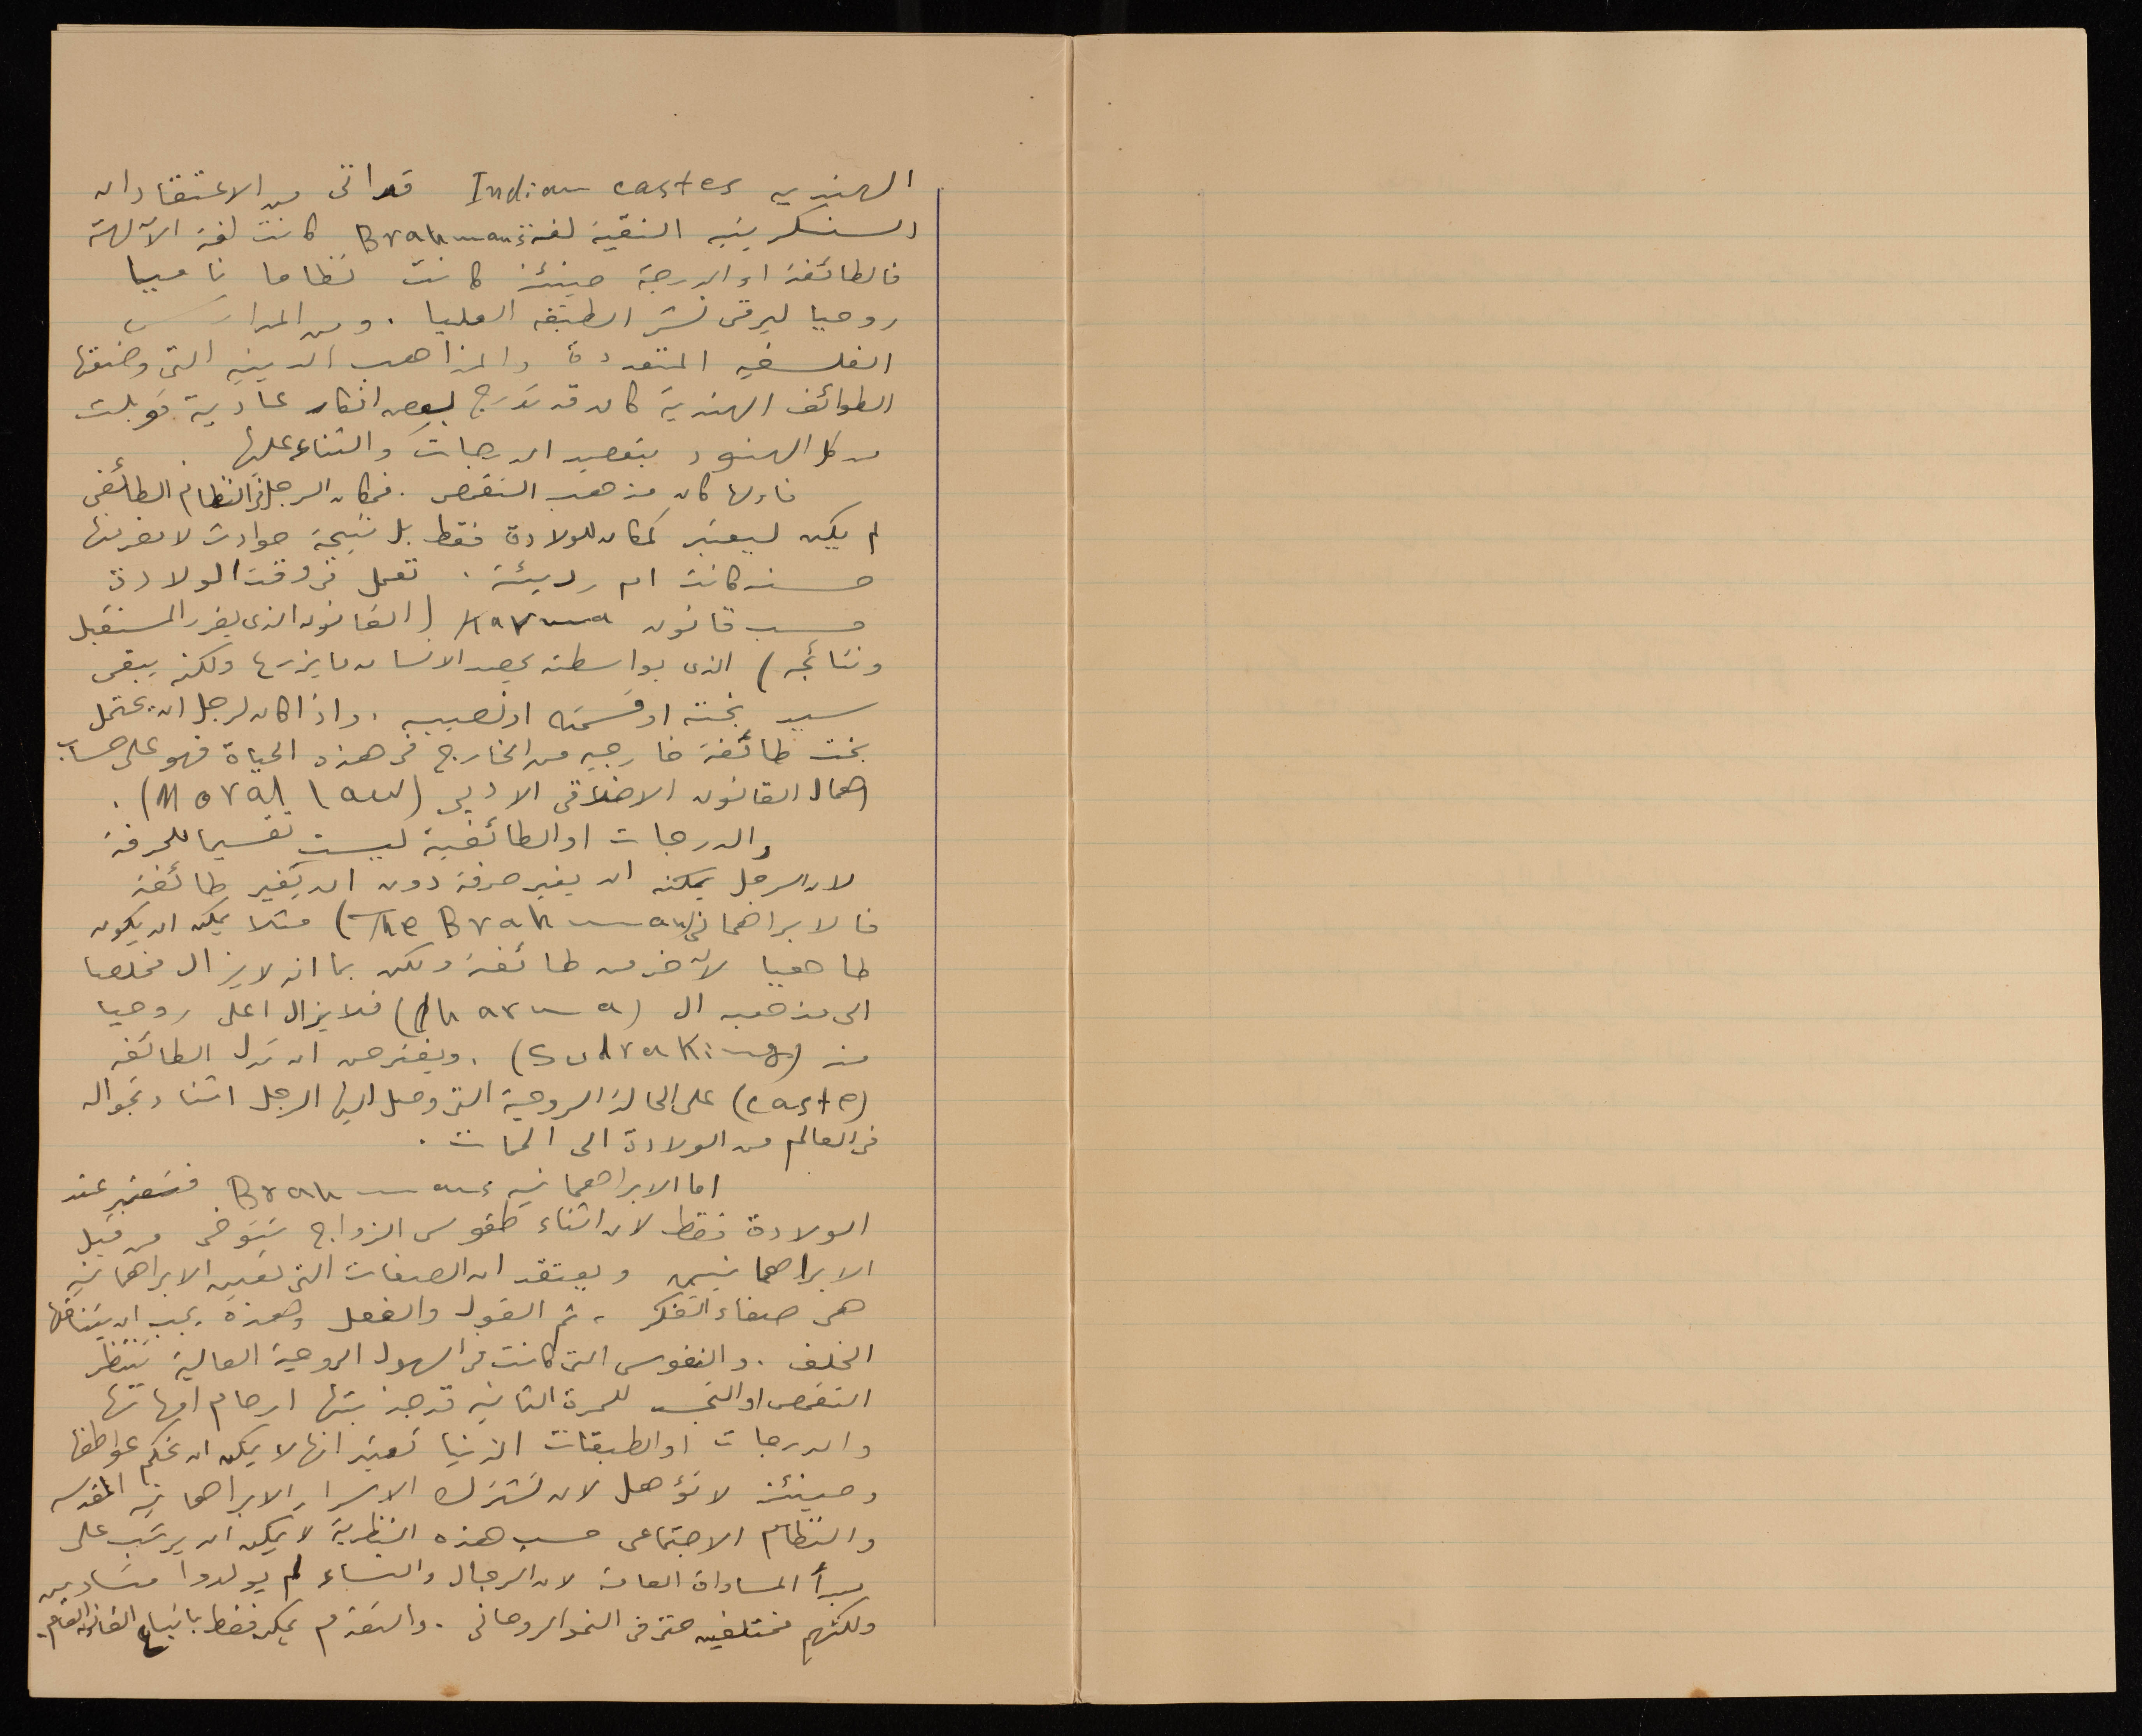 الهنديه Indian castes قد اتى من الاعتقاد ان
السنسكريتيه النقية لغة Brahmans كانت لغة الآلهة
فالطائفة او الدرجة حينئذ كانت نظاما ناميا
روحيا ليرقى نشر الطبقه العليا . ومن المدارس
الفلسفيه المتعددة والمذاهب الدينيه التى وضعتها
الطوائف الهندية كان قد تدرج بعض افكار عادية قوبلت
من كل الهنود بتعضيد الدرجات والثناء عليها .
فاولها كان مذهب التقمص . فمكان الرجل فى النظام الطائفى
لم يكن ليعتبر كمكان للولادة فقط بل نتيجة حوادث لا مفر منها
حسنه كانت ام رديئة . تعمل فى وقت الولادة
حسب قانون Karma (القانون الذى يقرر المستقبل
ونتائجه) الذى بواسطته يحصد الانسان ما يزرع ولكنه يبقى
سيد بخته او قسمته او نصيبه . واذا كان لرجل ان يحتمل
بخت طائفة خارجيه من الخارج فى هذه الحياة فهو على حساب
اهمال القانون الاخلاقى الادبى (Moral law) .
والدرجات او الطائفية ليست تقسيما للحرفة
لان الرجل يمكنه ان يغير حرفة دون ان يغير طائفة
فالابراهمانى (The Brahman) مثلا يمكن ان يكون
طاهيا لآخر من طائفة ولكن بما انه لا يزال مخلصا
الى مذهبه ال (dharma) فلا يزال اعلى روحيا
من (Sudra King) . ويفترض ان تدل الطائفه
(caste) على الحالة الروحية التى وصل اليها الرجل اثناء تجواله
فى العالم من الولادة الى الممات .
اما الابراهمانيه Brahmans فتعتبر عند
الولادة فقط لان اثناء طقوس الزواج من قبل
الابراهمانيين ويعتقد ان الصفات التى تعين الابراهمانيه
هى صفاء الفكر ، ثم القول والفعل وهذه يجب ان
الخلف . والنفوس التى كانت فى الروحية العالية تنتظر
التقمص او التجسد للمرة الثانيه قد جذبتها ارحام امهاتها
والدرجات او الطبقات الدنيا تعتبر انها لا يمكن ان تحكم عواطفها
وحينئذ لا تؤهل لان تشترك الاسرار الابراهمانيه المقدسه
والنظام الاجتماعى حسب هذه النظرية لا يمكن ان يرتب على
مبدأ المساواة العامة لان الرجال والنساء لم يولدوا متساوين
ولكنهم مختلفين حتى فى النمو الروحانى . والتقدم يمكن فقط باتباع القانون